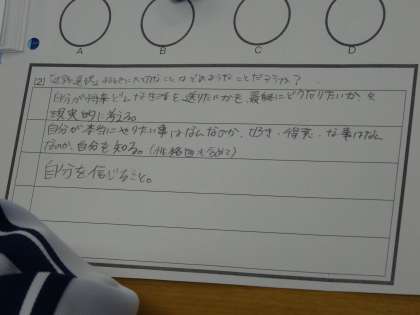 A B C D
(2)「進路選択」のために大切なことはどのようなことだろうか？
自分が将来どんな生活を送りたいかを、最終にどうなりたいか、を
現実的に考える。
自分が本当にやりたい事はなんなのか、好き・得意・な事はなん
なのか、自分を知る。(性格面も含めて)
自分を信じること。